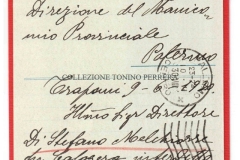 Direzione del Manico-
mio Provinciale
Palermo
COLLEZIONE TONINO PERRERA
Trapani, 9-6-19
Illmo Sigr Direttore
Di Stefano